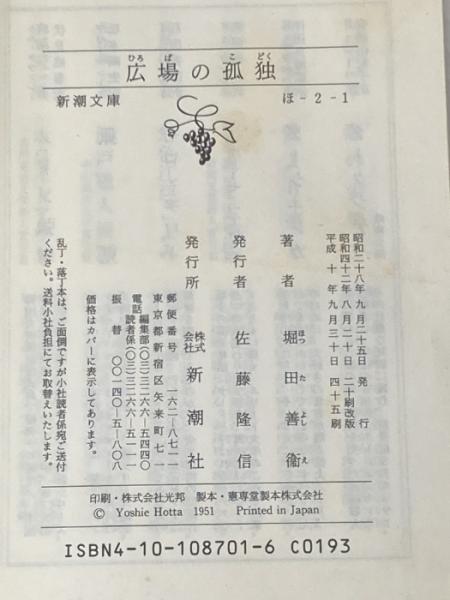 ひろ ば こ どく
広場の孤独
新潮文庫 ほ-2-1
昭和二十八年九月二十五日 発行
昭和四十二年八月二十日 二十刷改版
平成十年九月三十日 四十五刷
著者 堀田善衞
ほっ た よし え
発行者 佐藤隆信
発行所 株式会社 新潮社
郵便番号 一六二-八七一一
東京都新宿区矢来町七一
電話 編集部(〇三)三二六六-五四四〇
読者係(〇三)三二六六-五一一一
振替 〇〇一四〇-五-八〇八
価格はカバーに表示してあります。
乱丁・落丁本は、ご面倒ですが小社読者係宛ご送付
ください。送料小社負担にてお取替えいたします。
印刷・株式会社光邦 製本・憲専堂製本株式会社
© Yoshie Hotta 1951 Printed in Japan
ISBN4-10-108701-6 C0193